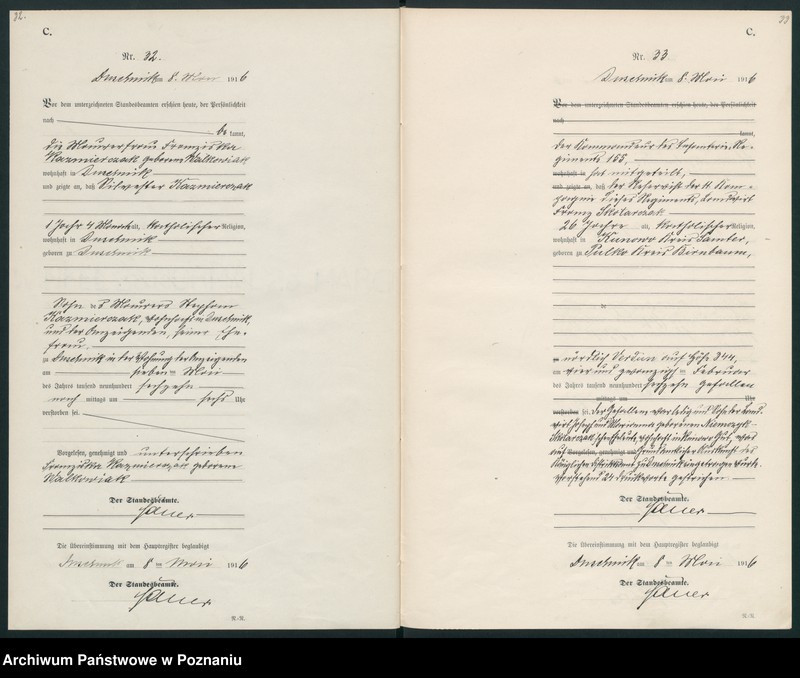 32.
C.
Nr. 32.
Duschnik am 8. Mai 1916
Vor dem unterzeichneten Standesbeamten erschien heute, der Persönlichkeit
nach be kannt,
die Maurerfrau Franziska
Kazmierczak geborene Walkowiak
wohnhaft in Duschnik
und zeigte an, daß Silvester Kazmierczak
1 Jahr 4 Monate alt, katholischer Religion,
wohnhaft in Duschnik
geboren zu Duschnik
Sohn des Maurers Stephan
Kazmierczak, wohnhaft in Duschnik,
und der Anzeigenden, seiner Ehe-
frau.
zu Duschnik in der Wohnung der Anzeigenden
am sieben ten Mai
des Jahres tausend neunhundert sechzehn
nach mittags um sechs Uhr
verstorben sei.
Vorgelesen, genehmigt und unterschrieben
Franziska Kazmierczak geborene
Walkowiak
Der Standesbeamte.
Die Übereinstimmung mit dem Hauptregister beglaubigt
Duschnik am 8 ten Mai 1916
Der Standesbeamte.
33
C.
Nr. 33
Duschnik am 8. Mai 1916
Vor dem unterzeichneten Standesbeamten erschien heute, der Persönlichkeit
nach kannt,
der Kommandeur des Infanterie-Re-
giments 155,
wohnhaft in hat mitgeteilt,
und zeigte an, daß der Reservist der 11 Kom-
pagnie dieses Regiments, Landwirt
Franz Sklarczak
26 Jahre alt, katholischer Religion,
wohnhaft in Kunowo Kreis Samter,
geboren zu Kreis Birnbaum,
nördlich Verdun auf Höhe 344,
am vier und zwanzig ten Februar
des Jahres tausend neunhundert sechzehn gefallen
mittags um Uhr
verstorben sei. Der Gefallene war ledig und Sohn der Land-
wirt Joseph und Marianna geborenen
Sklarczak schen Eheleute, wohnhaft in
Vorgelesen, genehmigt und
Königlichen Distriktsamts zu Duschnik eingetragen worden.
Vorstehend 24 Druckworte gestrichen.
Der Standesbeamte.
Die Übereinstimmung mit dem Hauptregister beglaubigt
Duschnik am 8 ten Mai 1916
Der Standesbeamte.
Archiwum Państwowe w Poznaniu